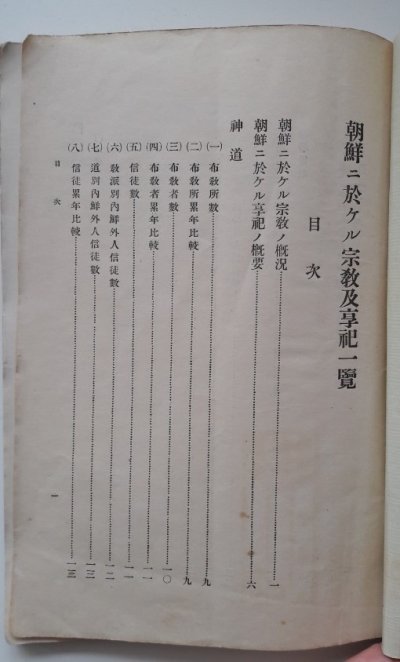 朝鮮ニ於ケル宗教及享祀一覽
目次
朝鮮ニ於ケル宗教ノ概況……一
朝鮮ニ於ケル享祀ノ概要……六
神道
(一) 布教所數……九
(二) 布教所累年比較……九
(三) 布教者數……一〇
(四) 布教者累年比較……一一
(五) 信徒數……一一
(六) 教派別內鮮外人信徒數……一二
(七) 道別內鮮外人信徒數……一二
(八) 信徒累年比較……一三
目次
一